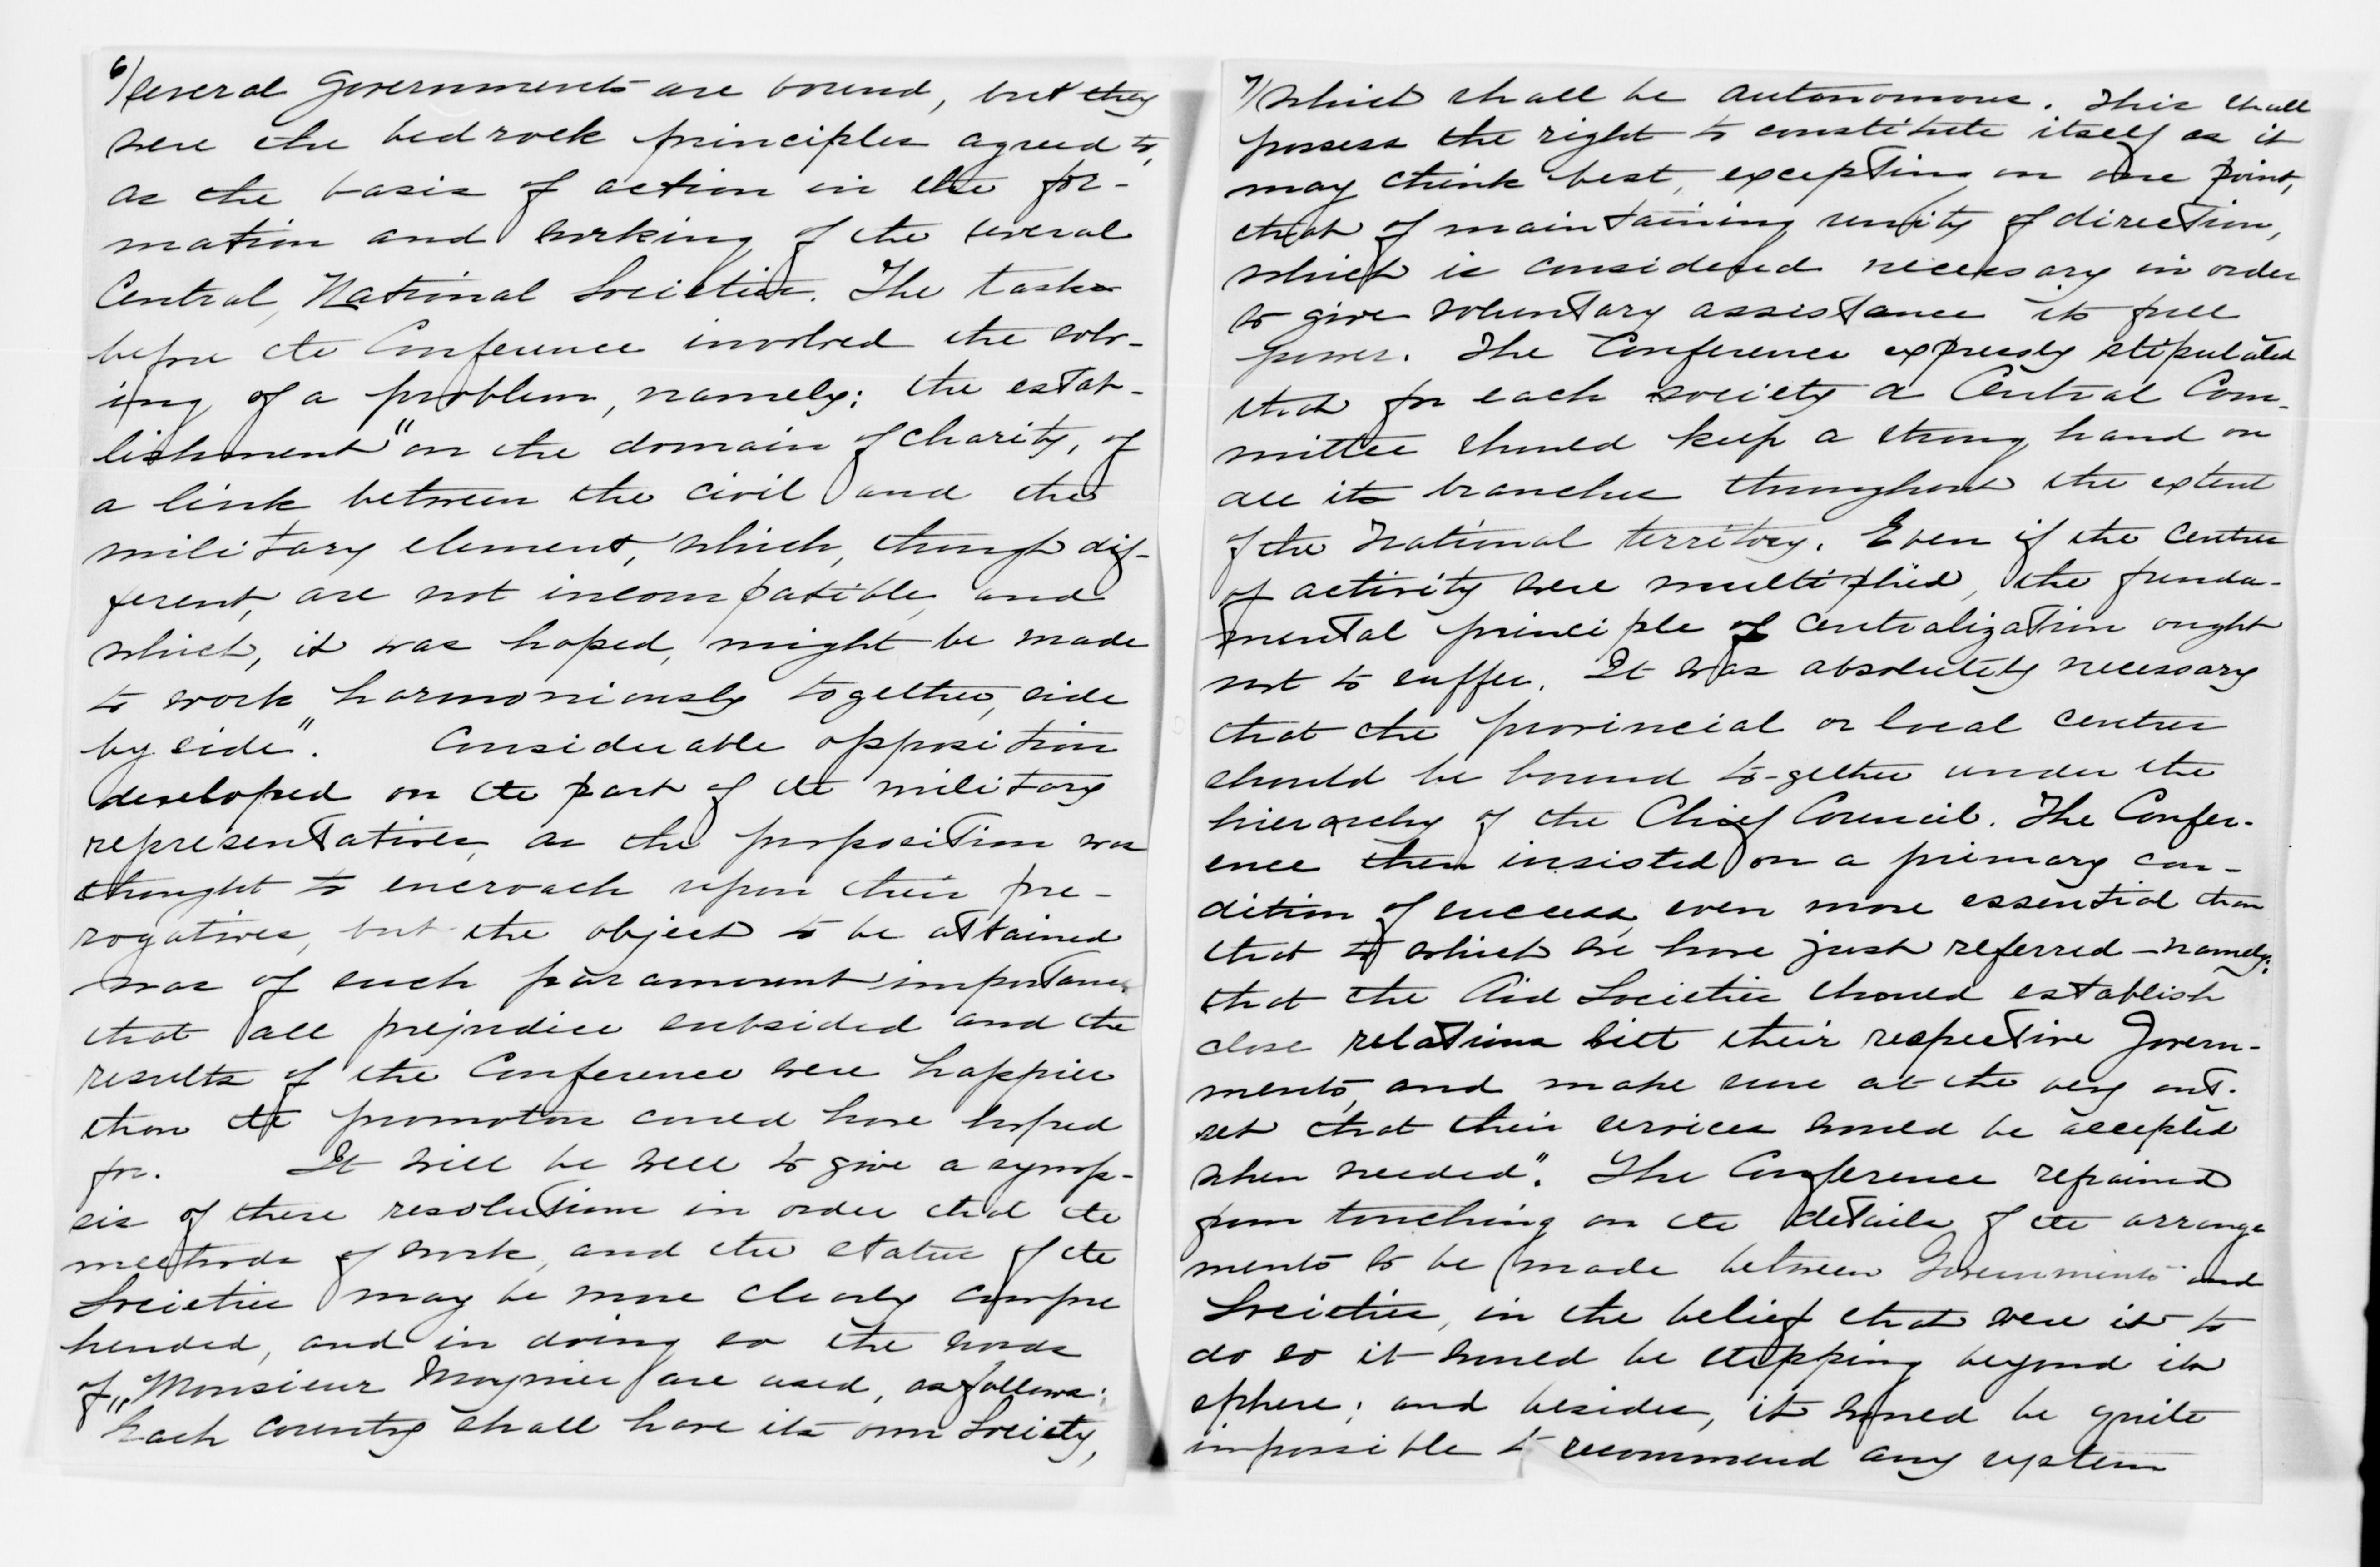 6/ several Governments are bound, but they
were the bedrock principles agreed to,
as the basis of action in the for-
mation and working of the several
Central, National Societies. The task
before the Conference involved the solv-
ing of a problem, namely: the estab-
lishment "on the domain of charity, of
a link between the civil and the
military element, which, though dif-
ferent, are not incompatible, and
which, it was hoped, might be made
to work harmoniously together, side
by side". Considerable opposition
developed on the part of the military
representatives, as the proposition was
thought to encroach upon their pre-
rogatives, but the object to be attained
was of such paramount importance
that all prejudice subsided and the
results of the Conference were happier
than the promotors could have hoped
for. It will be well to give a synop-
sis of these resolutions in order that the
methods of work, and the status of the
Societies may be more clearly compre
hended, and in doing so the words
of Monsieur Moynier are used, as follows:
"Each country shall have its own Society,
7/ which shall be autonomous. This shall
possess the right to constitute itself as it
may think best, excepting on one point,
that of maintaining unity of direction,
which is considered necessary in order
to give voluntary assistance its full
power. The Conference expressly stipulated
that for each society a Central Com-
mittee should keep a strong hand on
all its branches throughout the extent
of the National territory. Even if the centres
of activity were multiplied, the funda-
mental principle of centralization ought
not to suffer. It was absolutely necessary
that the provincial or local centres
should be bound to-gether under the
hierarchy of the Chief Council. The Confer-
ence then insisted on a primary con-
dition of success, even more essential than
that to which we have just referred - namely:
that the Aid Societies should establish
close relations with their respective Govern-
ments, and make sure at the very out-
set that their services would be accepted
when needed". The Conference refrained
from touching on the details of the arrange
ments to be made between Governments and
Societies, in the belief that were it to
do so it would be stepping beyond its
sphere; and besides, it would be quite
impossible to recommend any system